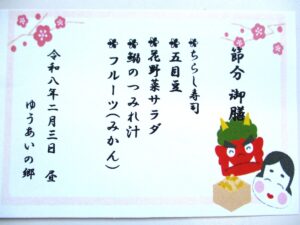 節分 御膳
㊗ちらし寿司
㊗五目豆
㊗花野菜サラダ
㊗鰯のつみれ汁
㊗フルーツ(みかん)
令和八年二月三日 昼
ゆうあいの郷